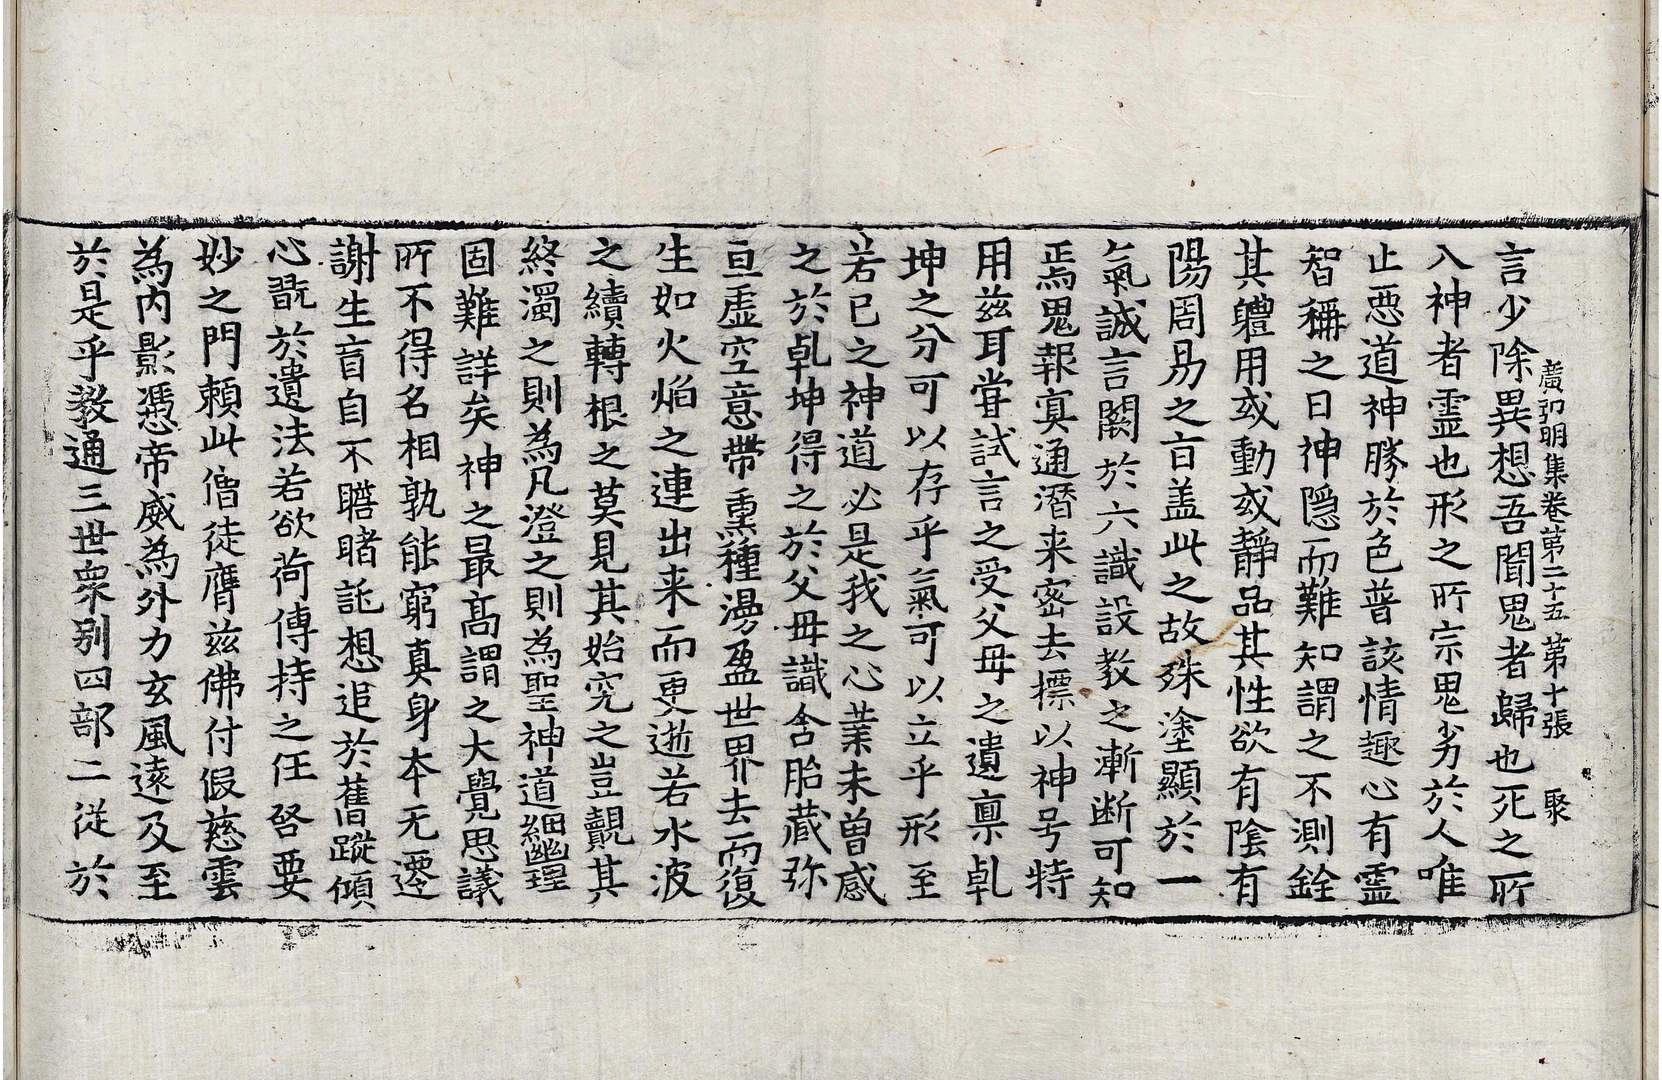 廣弘明集卷第二十五 第十張 聚
言少除異想吾聞鬼者歸也死之所
入神者靈也形之所宗鬼劣於人唯
止惡道神勝於色普該情趣心有靈
智稱之曰神隱而難知謂之不測銓
其軆用或動或靜品其性欲有陰有
陽周易之旨盖此之故殊塗顯於一
氣誠言闕於六識設教之漸断可知
焉鬼報寘通潛来密去標以神号特
用茲耳甞試言之受父母之遺禀乹
坤之分可以存乎氣可以立乎形至
若已之神道必是我之心業未曽感
之於乹坤得之於父母識含胎藏弥
亘虚空意帶熏種漫盈世界去而復
生如火焰之連出来而更逝若水波
之續轉根之莫見其始究之豈覿其
終濁之則為凡澄之則為聖神道細幽理
固難詳矣神之最髙謂之大覺思議
所不得名相孰能窮真身本无遷
謝生盲自不瞻睹託想追於舊蹤傾
心翫於遺法若欲荷傳持之任啓要
妙之門頼此僧徒膺茲佛付假慈雲
為内影憑帝威為外力玄風遠及至
於是乎教通三世衆别四部二從於